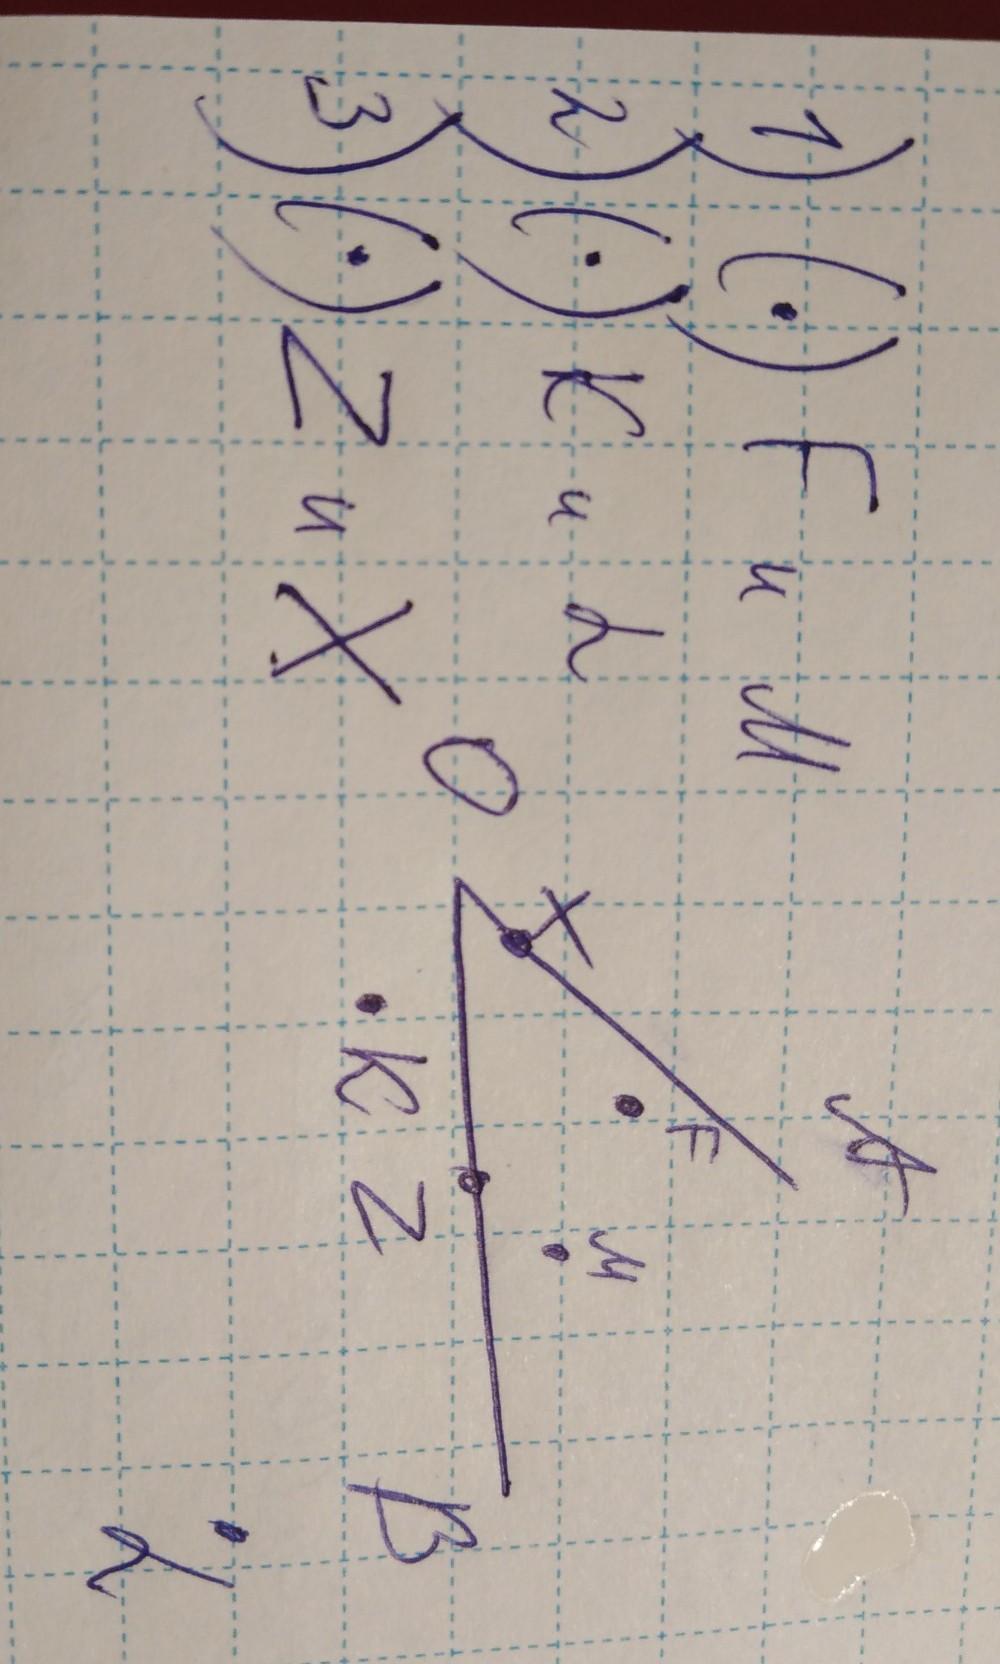 1) (·) F и M
2) (·) K и L
3) (·) Z и X
A
X
F
M
O
Z
K
B
L